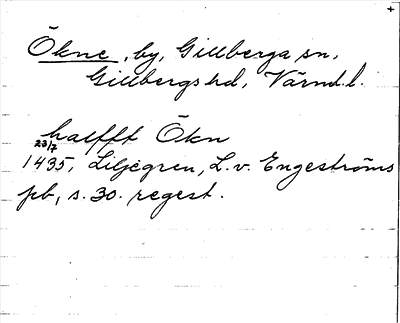 Ökne, by, Gillberga sn,
Gillbergs hd, Värml. l.
halfft Ökn
23/7
1435, Liljegren, L. v. Engeströms
pb, s. 30. regest.